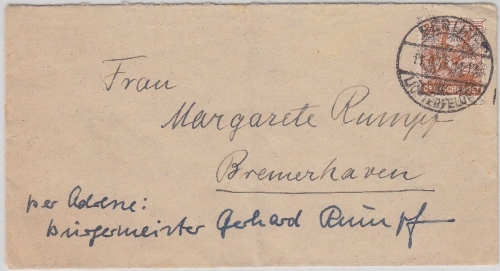 BERLIN
LICHTERFELDE
DEUTSCHE POST
Frau
Margarete Rumpf
Bremerhaven
per Adresse:
Bürgermeister Gerhard Rumpf